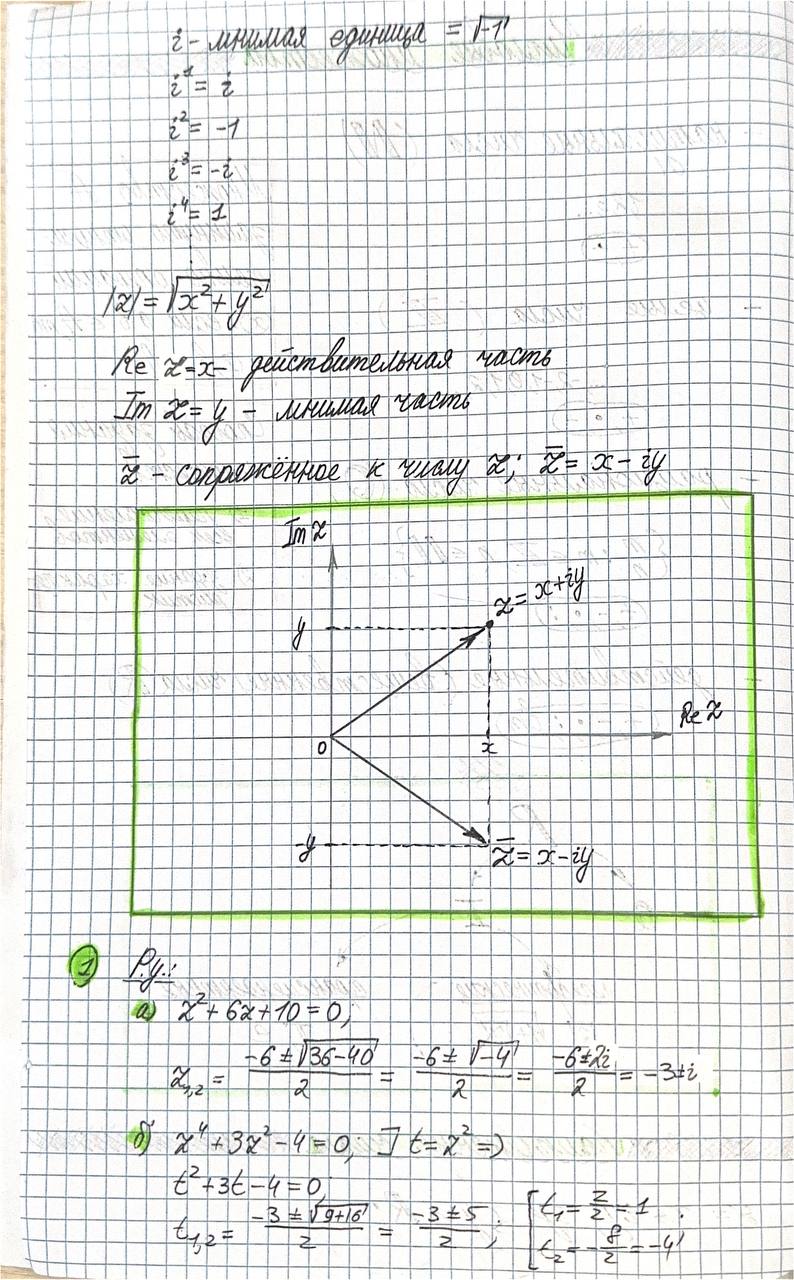 i - мнимая единица = √-1
i¹ = i
i² = -1
i³ = -i
i⁴ = 1
|z| = √x² + y²
Re z = x - действительная часть
Im z = y - мнимая часть
z̄ - сопряжённое к числу z; z̄ = x - iy
Im z
z = x + iy
y
Re z
0 x
-y
z̄ = x - iy
1 Р.у.:
а) z² + 6z + 10 = 0;
z₁,₂ = (-6 ± √36-40)/2 = (-6 ± √-4)/2 = (-6 ± 2i)/2 = -3 ± i
б) z⁴ + 3z² - 4 = 0; ] t = z² =>
t² + 3t - 4 = 0;
t₁,₂ = (-3 ± √9+16)/2 = (-3 ± 5)/2; [ t₁ = 2/2 = 1
t₂ = -8/2 = -4